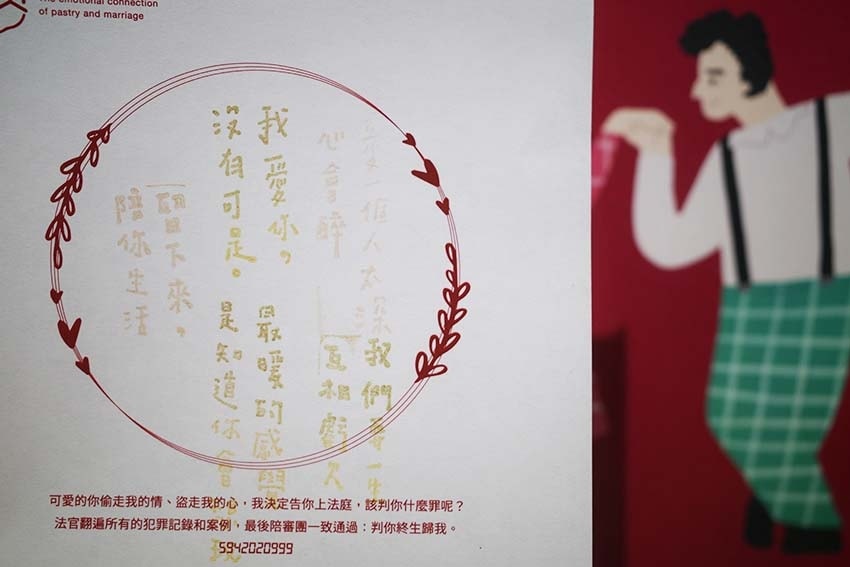 The emotional connection
of pastry and marriage
一個人太深
心會醉
我們要一生
互相虧欠
我愛你，
沒有可是。
最暖的感覺
是知道你會
我
留下來，
陪你生活
可愛的你偷走我的情、盜走我的心，我決定告你上法庭，該判你什麼罪呢？
法官翻遍所有的犯罪記錄和案例，最後陪審團一致通過：判你終生歸我。
5942020999